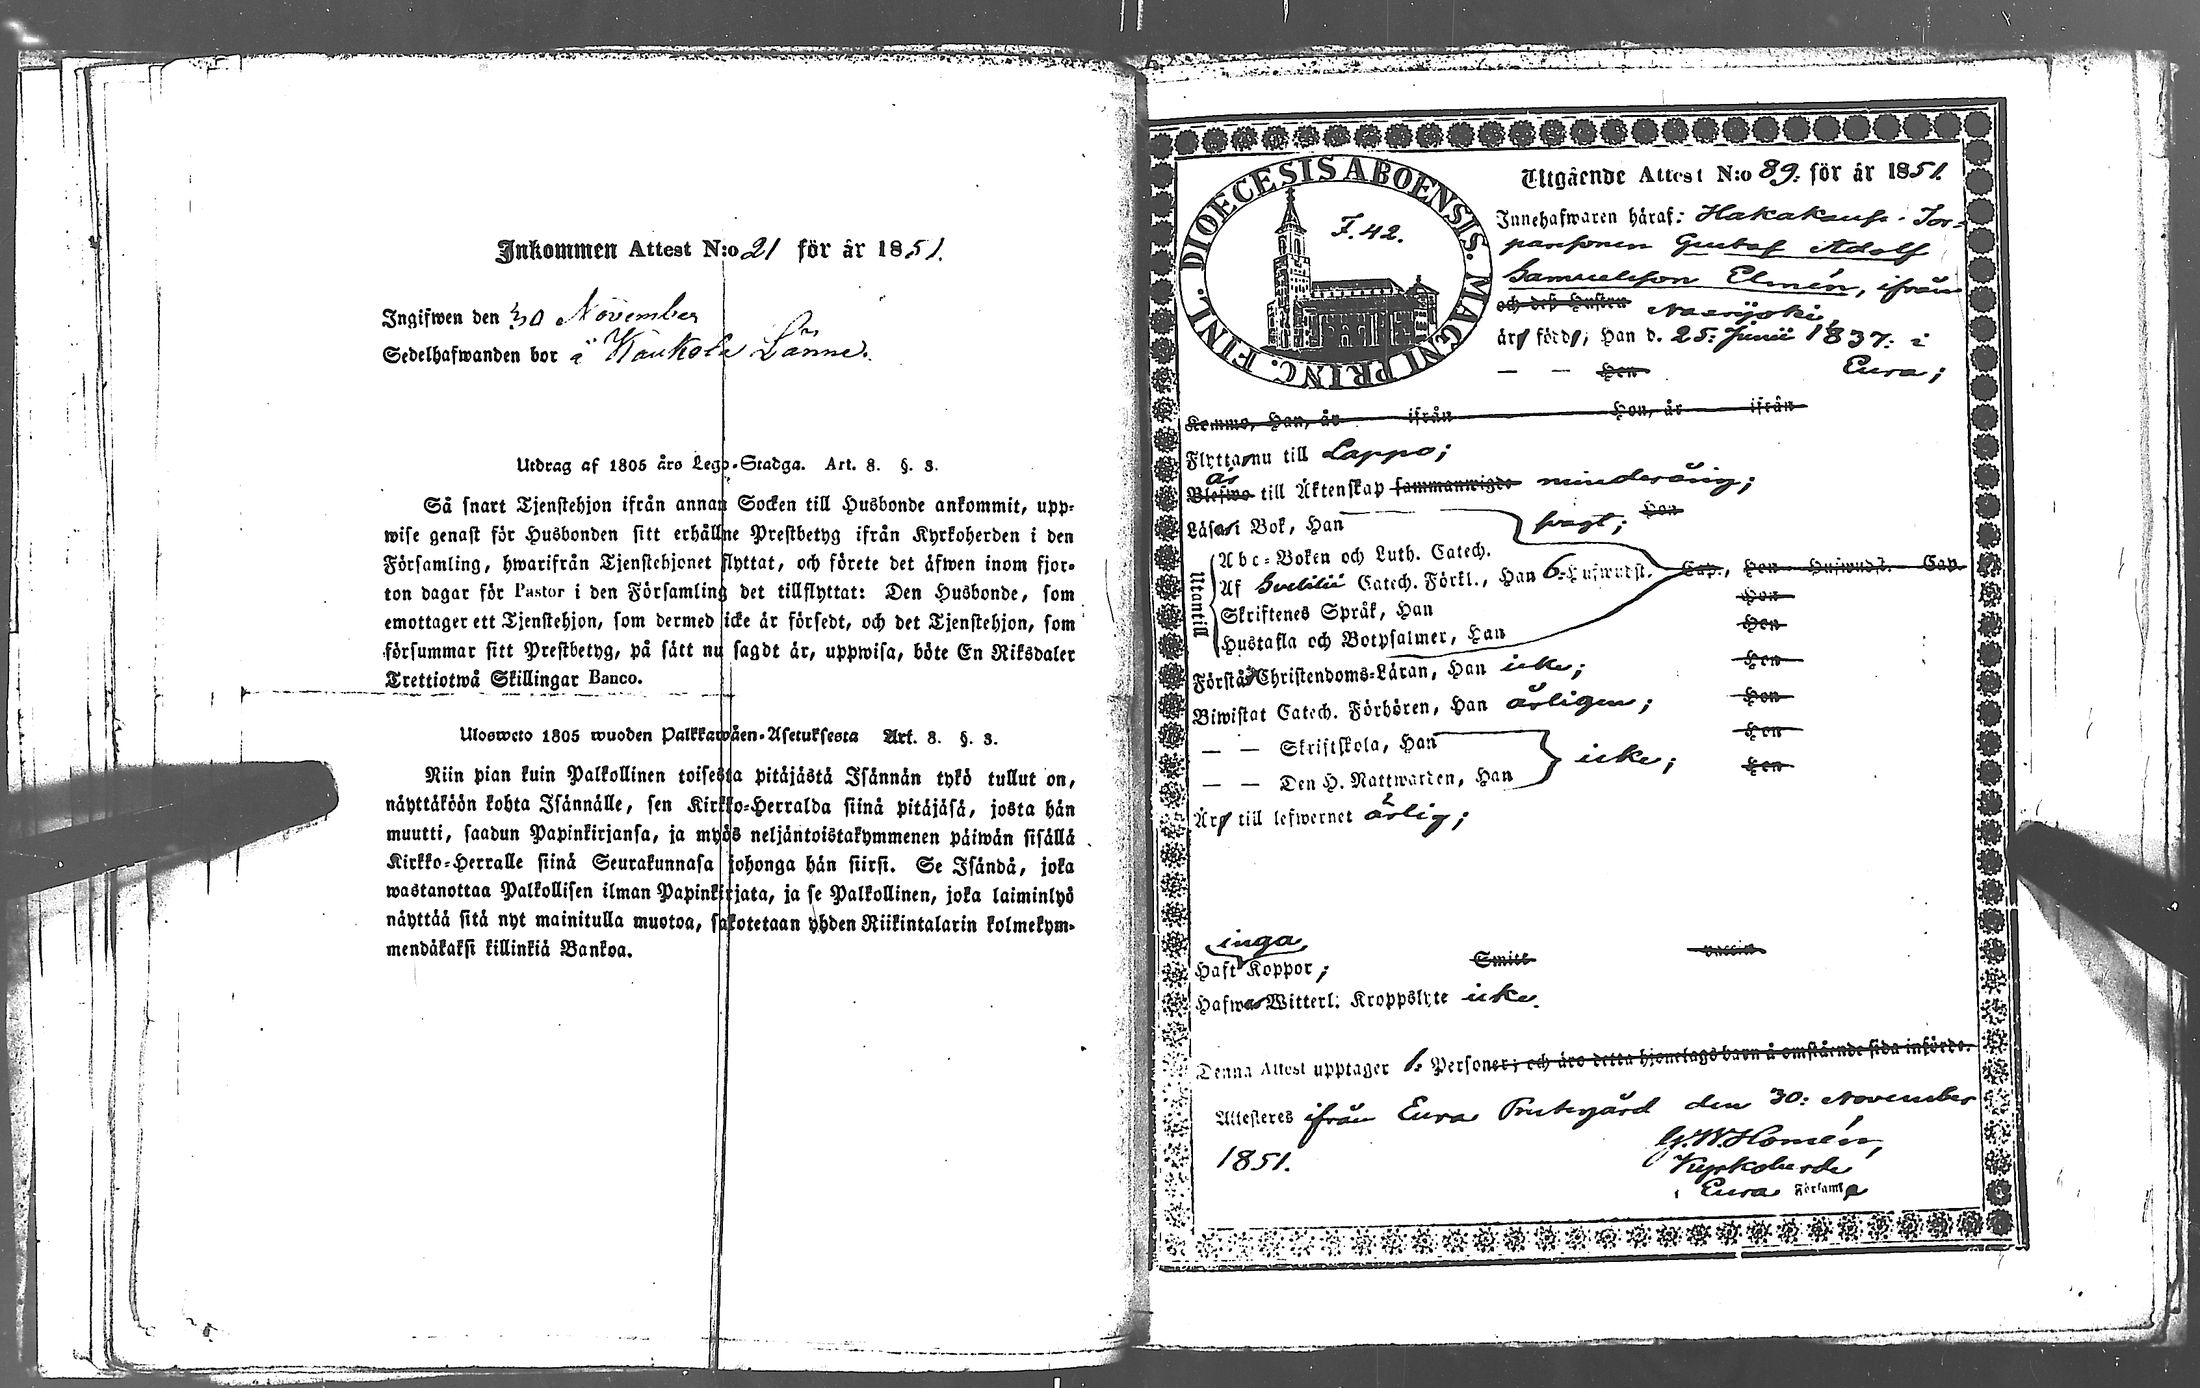 Inkommen Attest N:o 21 för år 1851.
Ingifwen den 30 November
Sedelhafwanden bor å Kaukola Länne.
Utdrag af 1805 års Lego-Stadga. Art. 8. §. 3.
Så snart Tjenstehjon ifrån annan Socken till Husbonde ankommit, upp-
wise genast för Husbonden sitt erhållne Prestbetyg ifrån Kyrkoherden i den
Församling, hwarifrån Tjenstehjonet flyttat, och förete det äfwen inom fjor-
ton dagar för Pastor i den Församling det tillflyttat: Den Husbonde, som
emottager ett Tjenstehjon, som dermed icke är försedt, och det Tjenstehjon, som
försummar sitt Prestbetyg, på sätt nu sagdt är, uppwisa, böte En Riksdaler
Trettiotwå Skillingar Banco.
Ulosweto 1805 wuoden Palkkawäen-Asetuksesta Art. 8. §. 3.
Niin pian kuin Palkollinen toisesta pitäjästä Isännän tykö tullut on,
näyttäköön kohta Isännälle, sen Kirkko-Herralda siinä pitäjäsä, josta hän
muutti, saadun Papinkirjansa, ja myös neljäntoistakymmenen päiwän sisällä
Kirkko-Herralle siinä Seurakunnasa johonga hän siirsi. Se Isändä, joka
wastanottaa Palkollisen ilman Papinkirjata, ja se Palkollinen, joka laiminlyö
näyttää sitä nyt mainitulla muotoa, sakotetaan yhden Riikintalarin kolmekym-
mendäkaksi killinkiä Bankoa.
DIOECESIS ABOENSIS. MAGNI PRINC. FINL.
F. 42.
Utgående Attest N:o 89: för år 1851.
Innehafwaren häraf: Hakakauss. Tor-
parsonen Gustaf Adolf
Samuelsson Elmén, ifrån
och dess Hustru Naarijoki,
är född; Han d. 25: Junii 1837: i
— — Hon Eura;
Kommo, Han, år ifrån Hon, år ifrån
Flyttar nu till Lappo;
är
Blefwo till Äktenskap sammanwigde minderårig;
Läsa i Bok, Han svagt; Hon
Utantill
Abc-Boken och Luth. Catech.
Af Svebilii Catech. Förkl., Han 6: Hufwudst. Cap., Hon Hufwudst. Cap.
Skriftenes Språk, Han Hon
Hustafla och Botpsalmer, Han Hon
Förstår Christendoms-Läran, Han icke; Hon
Biwistat Catech. Förhören, Han årligen; Hon
— — Skriftskola, Han Hon
— — Den H. Nattwarden, Han icke; Hon
Är till lefwernet ärlig;
inga
Haft Koppor; Smitt vaccin
Hafwa Witterl. Kroppslyte icke.
Denna Attest upptager 1. Personer; och äro detta hjonelags barn å omstående sida införde.
Attesteres ifrån Eura Prestegård den 30: November
1851.
G. W. Homén,
Kyrkoherde
i Eura Församl.